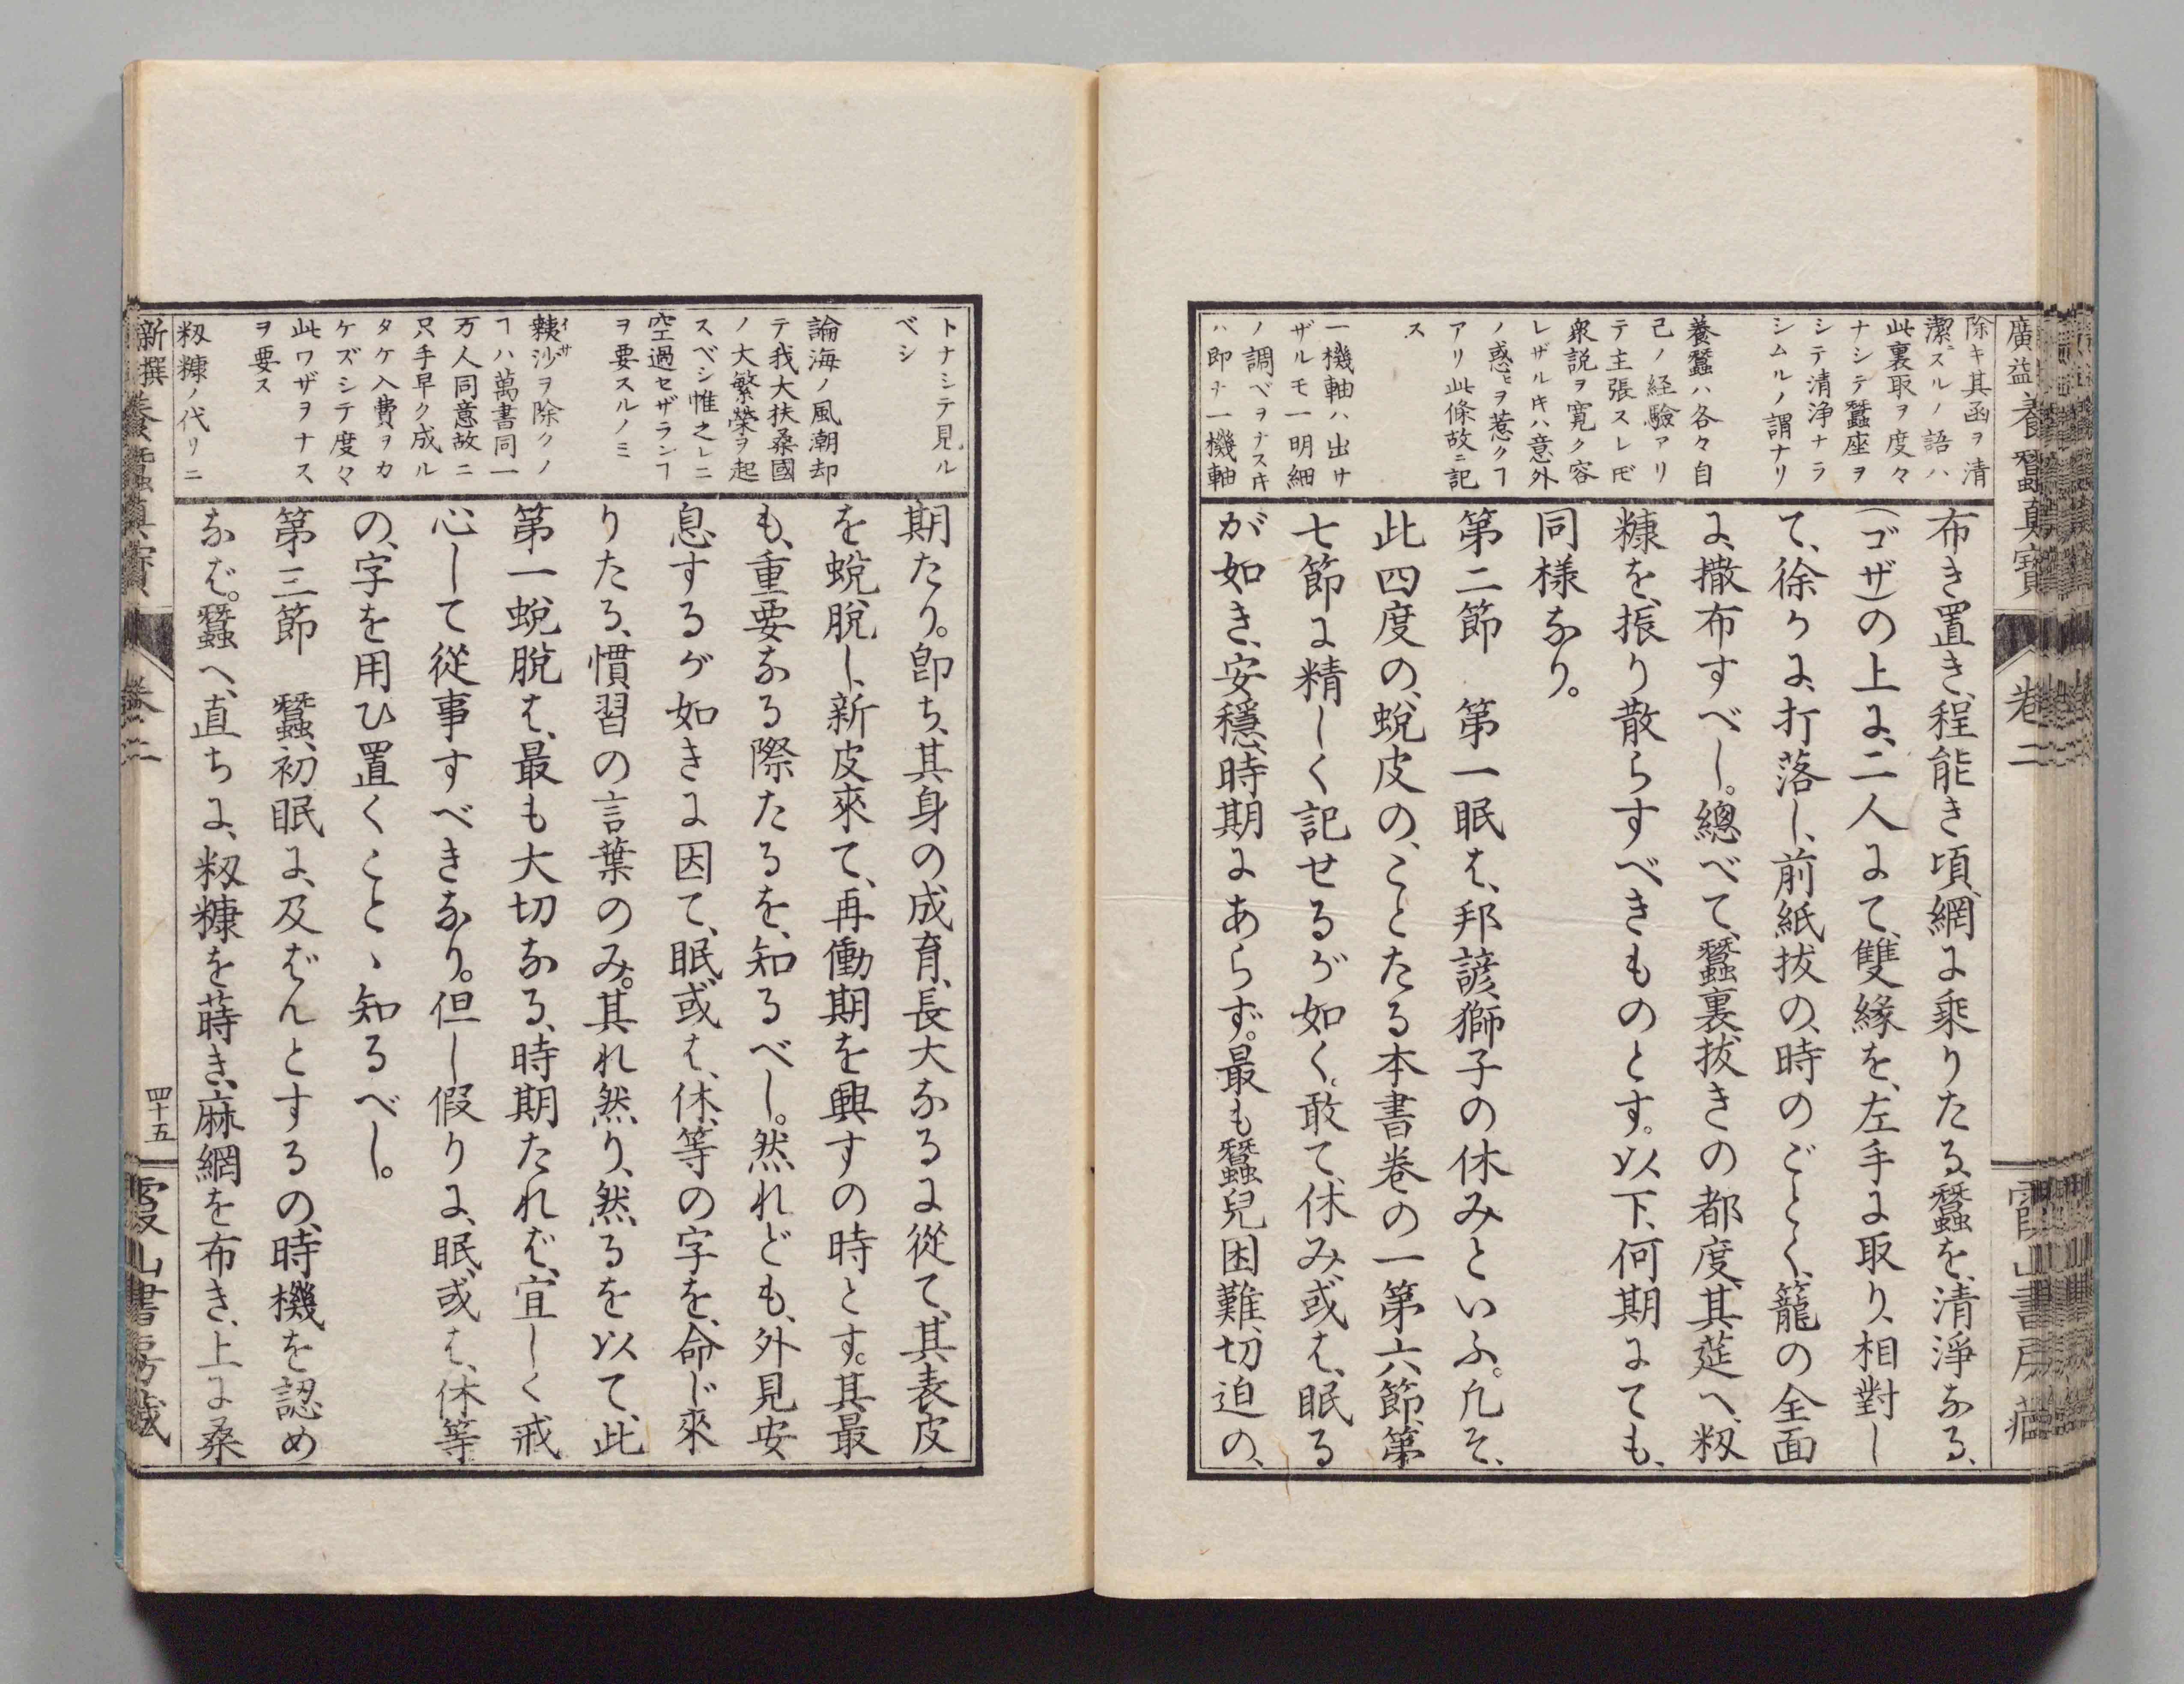 廣益養蠶眞寶
卷二
霞山書房藏
除キ其函ヲ清
潔ニスルノ語ハ
此裏取ヲ度々
ナシテ蠶座ヲ
シテ清浄ナラ
シムルノ謂ナリ
養蠶ハ各々自
己ノ経驗アリ
テ主張スレ𪜈
衆説ヲ寛ク容
レザルㇳキハ意外
ノ惑ヒヲ惹クヿ
アリ此條故ニ記
ス
一機軸ハ出サ
ザルモ一明細
ノ調ベヲナス
ハ即チ一機軸
布き置き、程能き頃、網に乗りたる、蠶を、清淨なる、
(ゴザ)の上に、二人にて、雙緣を、左手に取り、相對し
て、徐々に、打落し、前紙拔の、時のごとく、籠の全面
に、撒布すべし。總べて、蠶裏拔きの都度、其莚へ、籾
糠を、振り散らすべきものとす。以下、何期にても、
同様なり。
第二節　第一眠は、邦諺、獅子の休みといふ。凡そ、
此四度の、蛻皮の、ことたる本書卷の一第六節、第
七節に精しく記せるが如く。敢て、休み、或は、眠る
が如き、安穏、時期にあらず。最も蠶兒困難、切迫の、
トナシテ見ル
ベシ
論海ノ風潮却
テ我大扶桑國
ノ大繁榮ヲ起
スベシ惟之レニ
空過セザランヿ
ヲ要スルノミ
沙ヲ除クノ
ヿハ萬書同一
万人同意故ニ
只手早ク成ル
タケ入費ヲカ
ケズシテ度々
此ワザヲナス、
ヲ要ス
籾糠ノ代リニ
期たり。卽ち、其身の成育、長大なるに從て、其表皮
を蛻脫し、新皮來て、再働期を興すの時とす。其最
も、重要なる際たるを、知るべし。然れども、外見安
息するが如きに因て、眠、或は、休、等の字を、命じ來
りたる、慣習の言葉のみ。其れ然り、然るを以て、此
第一蛻脫は、最も大切なる、時期たれば、宜しく戒
心して從事すべきなり。但し假りに、眠、或は、休等
の、字を用ひ置くこと、知るべし。
第三節　蠶、初眠に、及ばんとするの、時機を認め
なば。蠶へ、直ちに、籾糠を蒔き、麻網を布き、上に桑
新撰養蠶眞寶
卷二
四十五
霞山書房藏